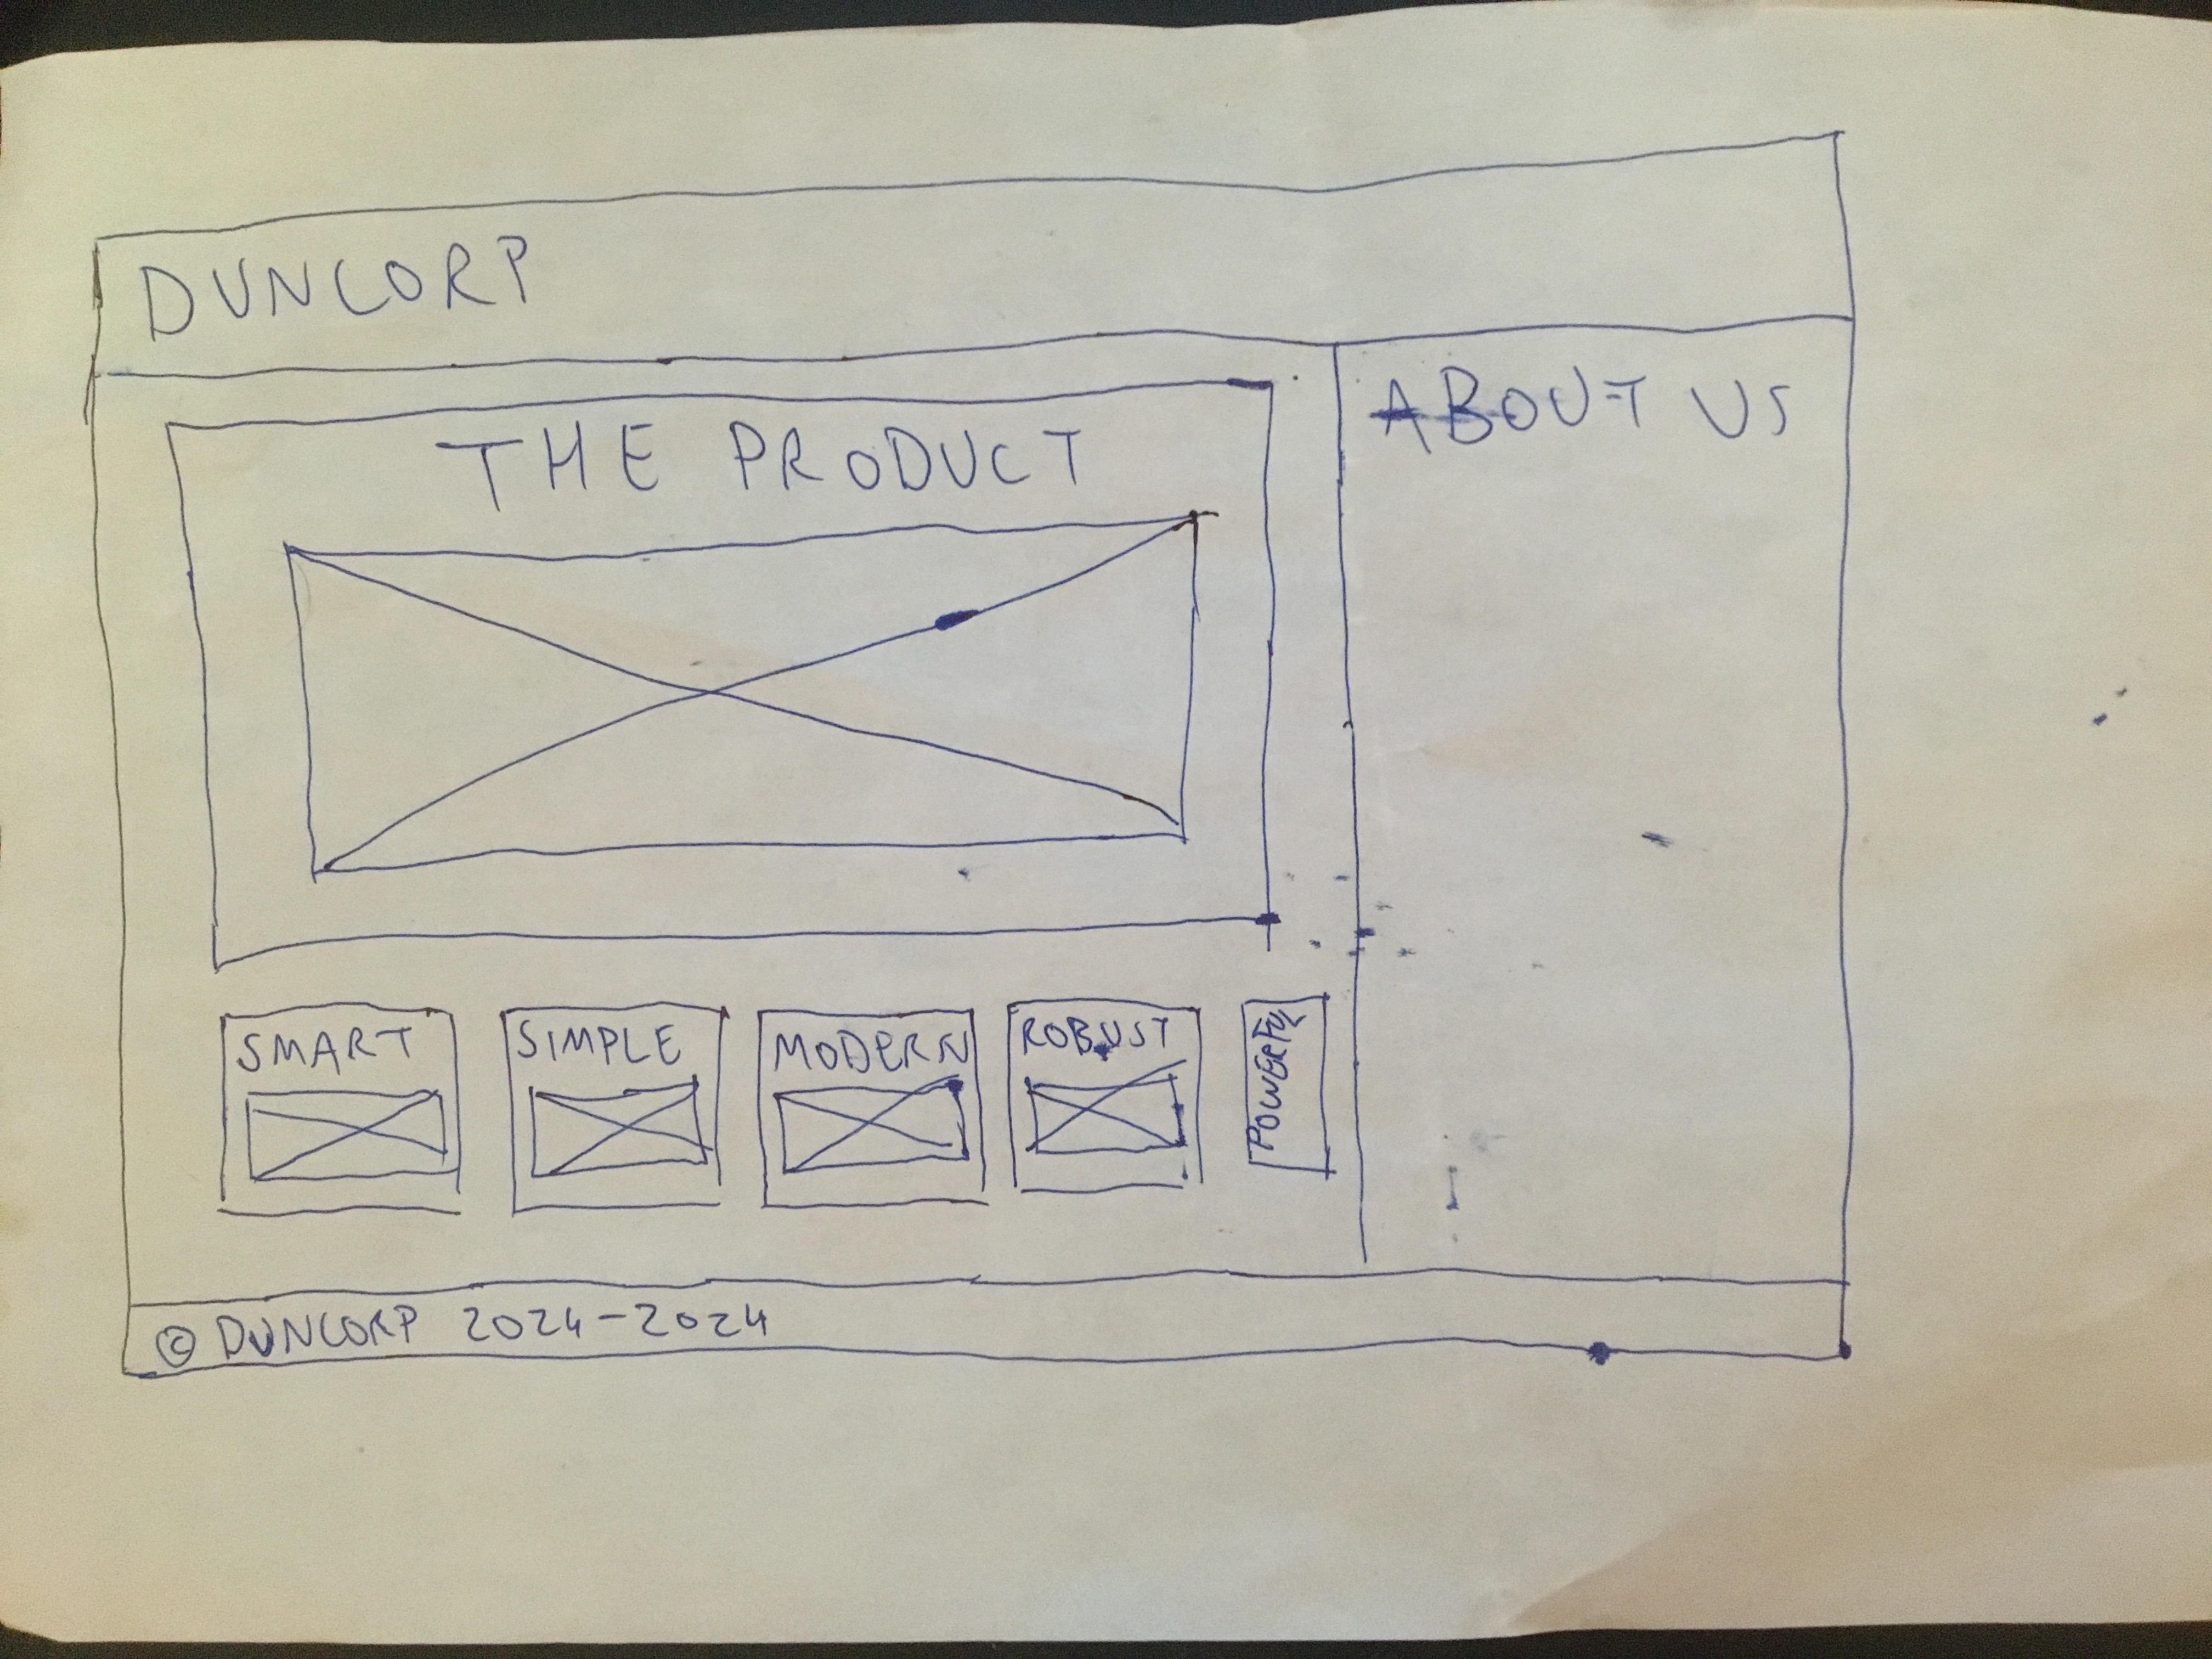 DUNCORP
THE PRODUCT
ABOUT US
SMART
SIMPLE
MODERN
ROBUST
POWERFUL
© DUNCORP 2024-2024